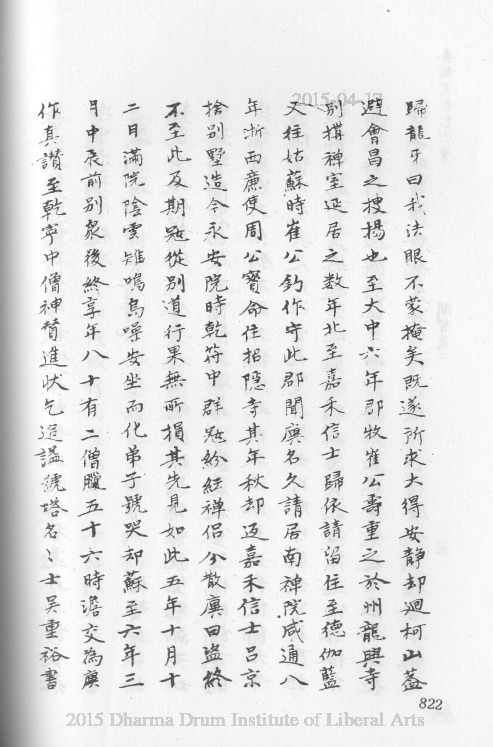 2015-04-17
歸龍牙曰我法眼不蒙掩矣既遂所求大得安靜却迴柯山蓋
避會昌之搜揚也至大中六年郡牧崔公壽重之於州龍興寺
別搆禪室延居之数年北至嘉禾信士歸依請留住至德伽藍
又住姑蘇時崔公鈞作守此郡聞廙名久請居南禪院咸通八
年浙西廉使周公寶命住招隠寺其年秋却迈嘉禾信士吕京
捨別墅造今永安院時乾符中群寇紛紜禅侣分散廙曰盜終
不至此及期寇從別道行果無所損其先見如此五年十月十
二日滿院陰雲雉鳴鳥噪安坐而化弟子號哭却蘇至六年三
月中辰前別衆後終享年八十有二僧臘五十六時澹交為廙
作真讃至乾寧中僧神贊進狀乞追謚號塔名〻士吴重裕書
822
2015 Dharma Drum Institute of Liberal Arts